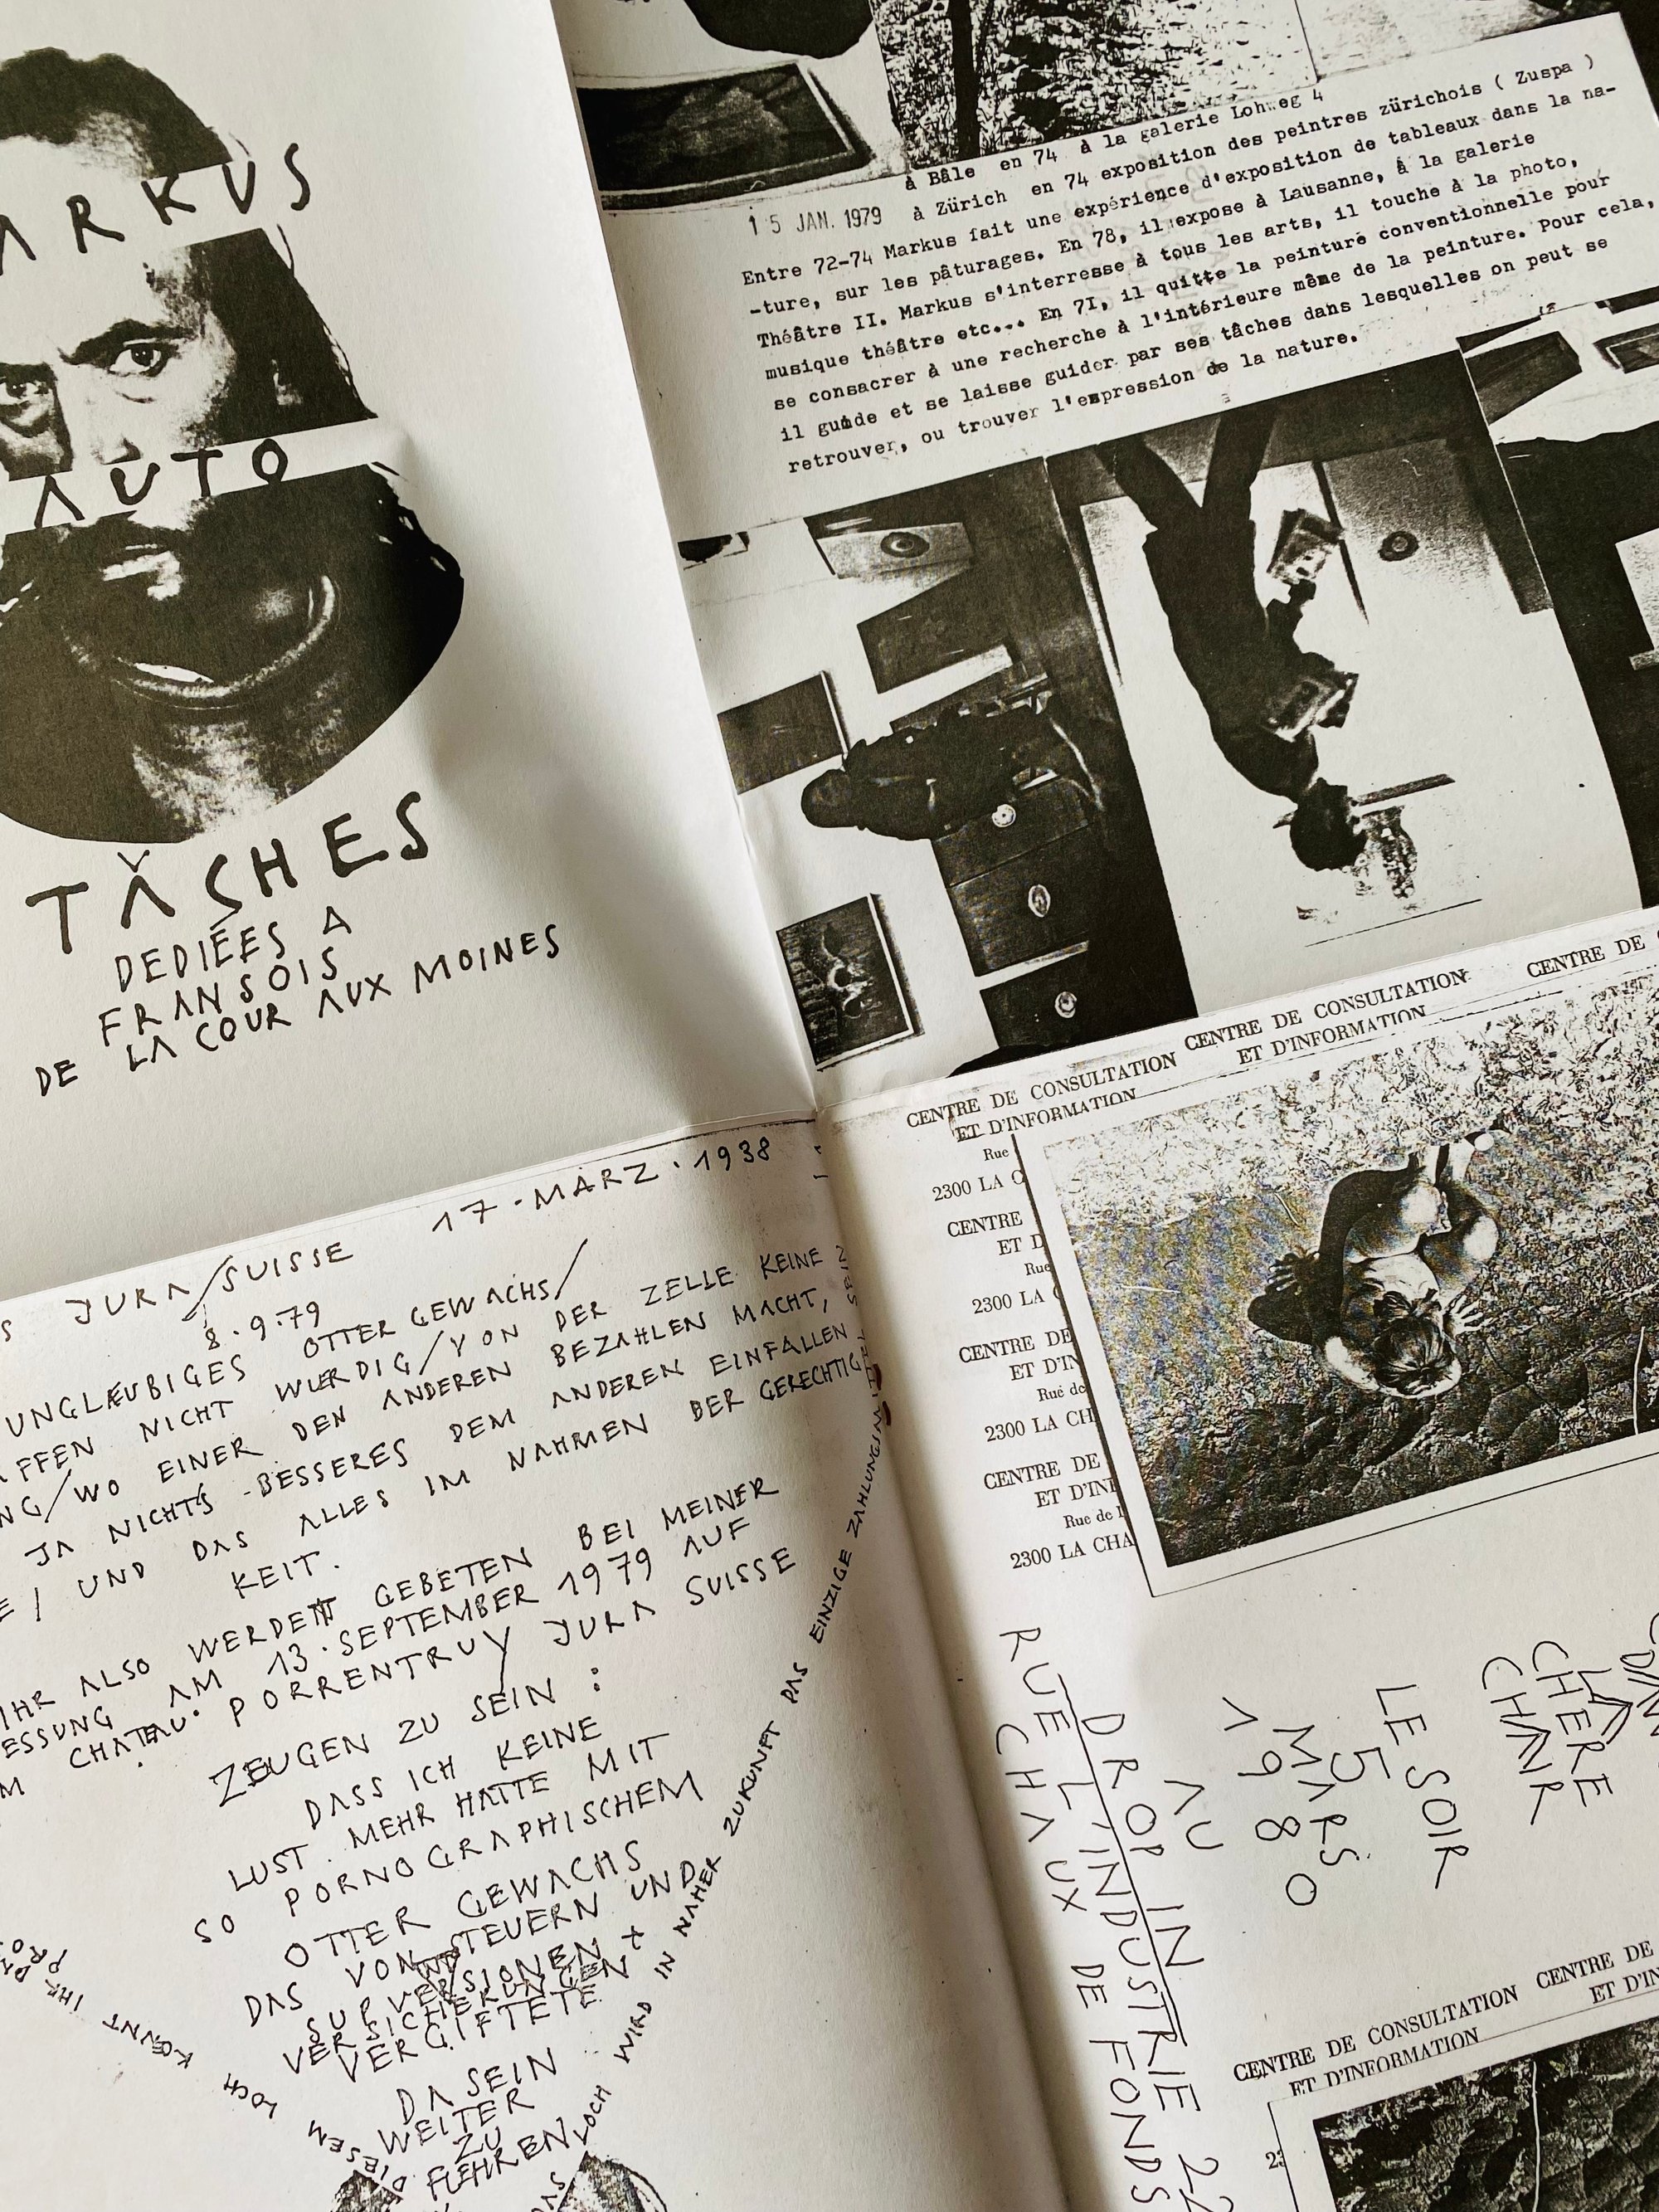 ARKUS
AUTO
TÂCHES
DEDIÉES A
FRANSOIS
DE LA COUR AUX MOINES
à Bâle en 74 à la galerie Lohweg 4
15 JAN. 1979 à Zürich en 74 exposition des peintres zürichois ( Zuspa )
Entre 72-74 Markus fait une expérience d'exposition de tableaux dans la na-
-ture, sur les pâturages. En 78, il expose à Lausanne, à la galerie
Théâtre II. Markus s'interresse à tous les arts, il touche à la photo,
musique théâtre etc... En 7I, il quitte la peinture conventionnelle pour
se consacrer à une recherche à l'intérieure même de la peinture. Pour cela,
il guide et se laisse guider par ses tâches dans lesquelles on peut se
retrouver, ou trouver l'expression de la nature.
S JURA/SUISSE 17-MÄRZ.1938
8.9.79
UNGLÆUBIGES OTTER GEWACHS/
AFFEN NICHT WUERDIG/VON DER ZELLE KEINE
NG/WO EINER DEN ANDEREN BEZAHLEN MACHT,
JA NICHTS BESSERES DEM ANDEREN EINFALLEN
E/ UND DAS ALLES IM NAHMEN DER GERECHTIG
KEIT.
IHR ALSO WERDET GEBETEN BEI MEINER
ESSUNG AM 13.SEPTEMBER 1979 AUF
M CHATEAU PORRENTRUY JURA SUISSE
ZEUGEN ZU SEIN:
DASS ICH KEINE
LUST MEHR HATTE MIT
SO PORNOGRAPHISCHEM
OTTER GEWACHS
DAS VON STEUERN UND
SUPVERSIONEN
VERSICHERUNGEN +
VERGIFTETE
DA SEIN
WEITER
ZU
FUEHREN
DIESEM LOCH KŒNNT IHR
DAS LOCH WIRD IN NAHER ZUKUNFT DAS EINZIGE ZAHLUNGSMITTEL SEIN
CENTRE DE CONSULTATION CENTRE DE CONSULTATION CENTRE DE
ET D'INFORMATION ET D'INFORMATION
Rue
2300 LA C
CENTRE
ET D
Rue
2300 LA C
CENTRE DE
ET D'IN
Rue de
2300 LA CH
CENTRE DE
ET D'INF
Rue de l
2300 LA CHA
CHERE
CHANR
LE SOIR
5
MARS
1980
AU
DROP IN
RUE L'INDUSTRIE 22
CHAUX DE FONDS
CENTRE DE CONSULTATION CENTRE DE
ET D'INFORMATION ET D'IN
23